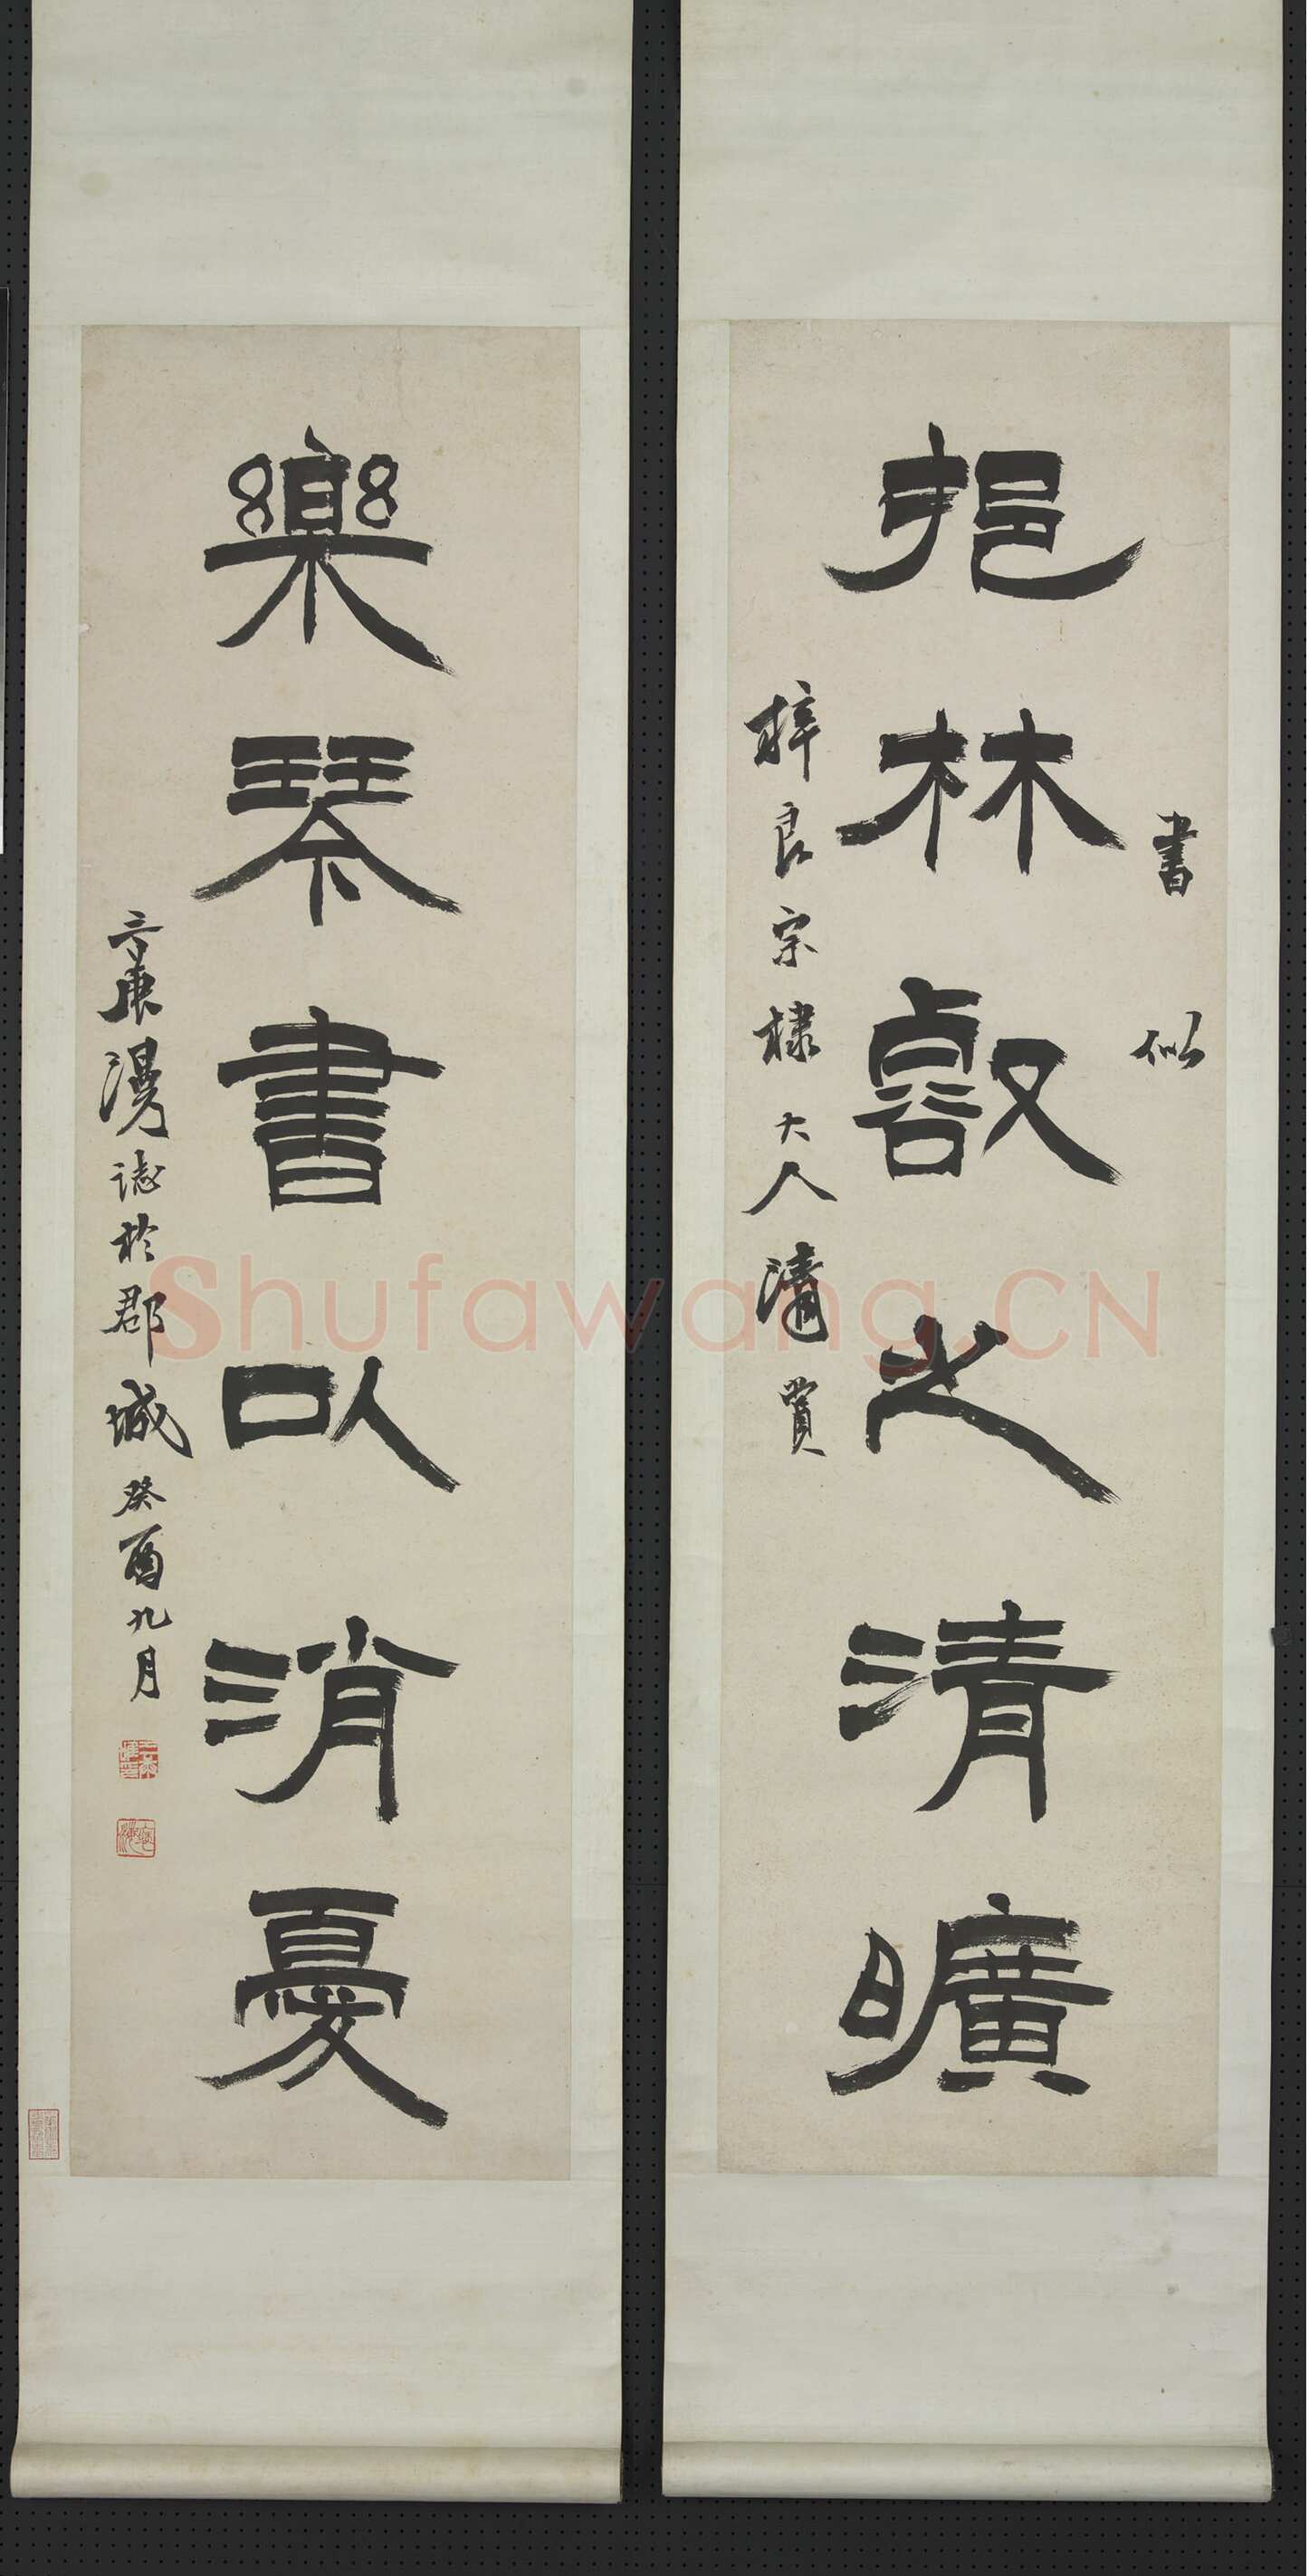 書似
挹林㕡之清曠
梓良宗棣大人清賞
樂琴書以消憂
漫誌於郡城癸酉九月
Shufawang.CN